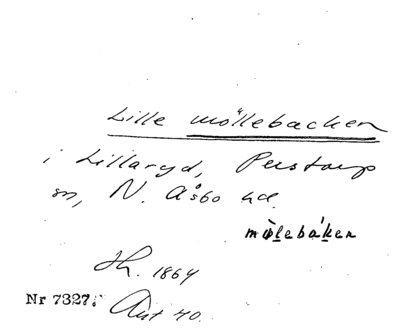 Lille möllebacken
i Lillaryd, Perstorp
sn, N. Åsbo hd.
mölebáken
Th. 1864
Nr 7327. Ant 40.